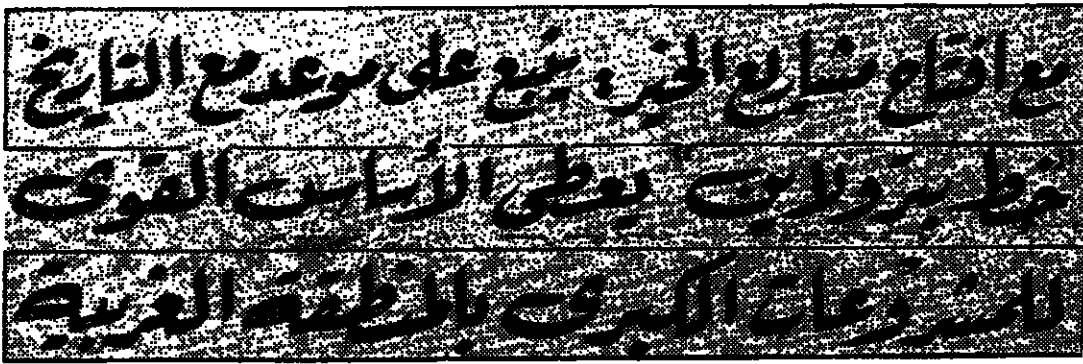 مع افتتاح مشاريع الخير: ينبع على موعد مع التاريخ
خط بترولاين يعطى الأساس القوى
للمشروعات الكبرى بالمنطقة الغربية